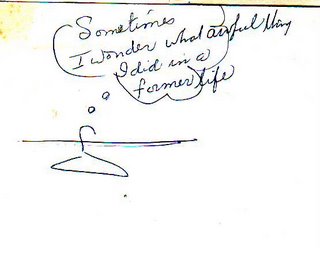 Sometimes
I wonder what awful thing
I did in a
former life